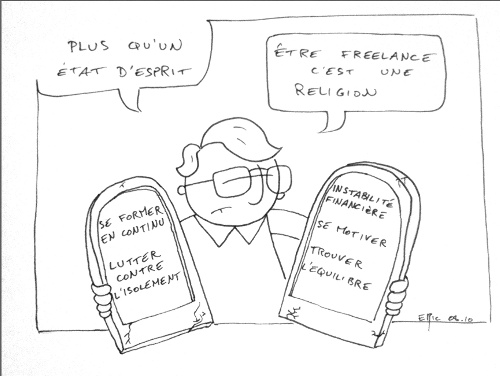 PLUS QU'UN
ÉTAT D'ESPRIT
ÊTRE FREELANCE
C'EST UNE
RELIGION
SE FORMER
EN CONTINU
LUTTER
CONTRE
L'ISOLEMENT
INSTABILITÉ
FINANCIÈRE
SE MOTIVER
TROUVER
L'EQUILIBRE